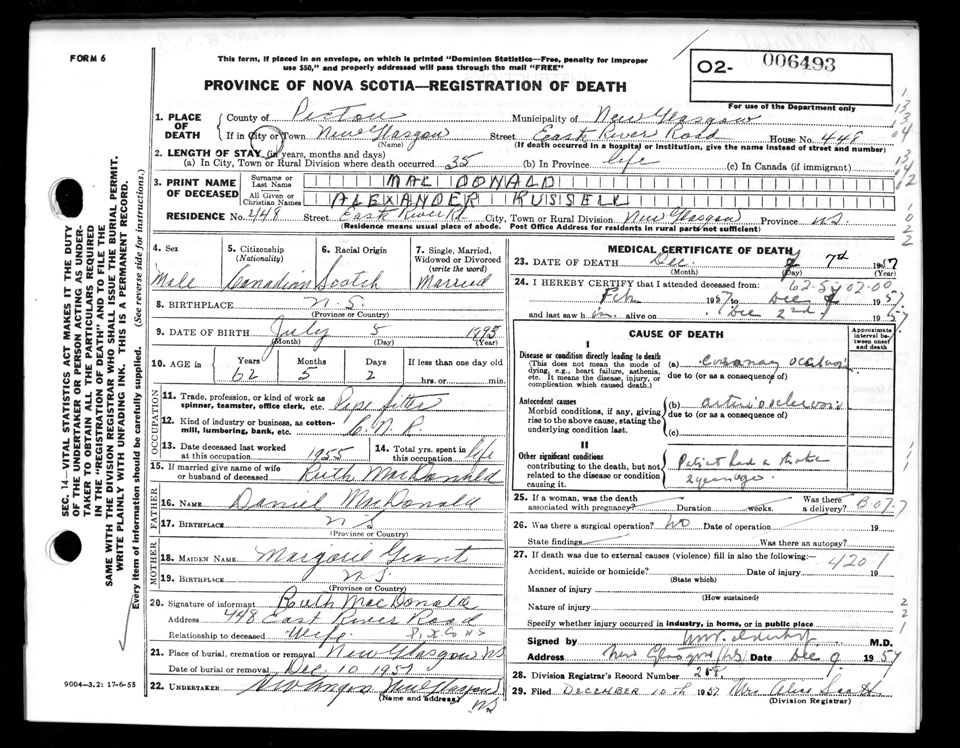 FORM 6
This form, if placed in an envelope, on which is printed "Dominion Statistics—Free, penalty for improper
use $50," and properly addressed will pass through the mail "FREE"
02- 006493
PROVINCE OF NOVA SCOTIA—REGISTRATION OF DEATH
For use of the Department only
1. PLACE OF DEATH
County of Pictou Municipality of New Glasgow
If in City or Town New Glasgow Street East River Road House No. 448
(Name) (If death occurred in a hospital or institution, give the name instead of street and number)
2. LENGTH OF STAY (in years, months and days)
(a) In City, Town or Rural Division where death occurred 35 (b) In Province life (c) In Canada (if immigrant)
3. PRINT NAME OF DECEASED
Surname or Last Name MAC DONALD
All Given or Christian Names ALEXANDER RUSSELL
RESIDENCE No. 448 Street East River Rd City, Town or Rural Division New Glasgow Province N.S.
(Residence means usual place of abode. Post Office Address for residents in rural parts not sufficient)
4. Sex
Male
5. Citizenship
(Nationality)
Canadian
6. Racial Origin
Scotch
7. Single, Married, Widowed or Divorced
(write the word)
Married
8. BIRTHPLACE N.S.
(Province or Country)
9. DATE OF BIRTH July 5 1895
(Month) (Day) (Year)
10. AGE in Years Months Days If less than one day old
62 5 2 hrs. or min.
OCCUPATION
11. Trade, profession, or kind of work as
spinner, teamster, office clerk, etc. Pipe fitter
12. Kind of industry or business, as cotton-
mill, lumbering, bank, etc. C.N.R.
13. Date deceased last worked
at this occupation 1955
14. Total yrs. spent in
this occupation life
15. If married give name of wife
or husband of deceased Ruth MacDonald
FATHER
16. NAME Daniel MacDonald
17. BIRTHPLACE N S
(Province or Country)
MOTHER
18. MAIDEN NAME Margorie Grant
19. BIRTHPLACE N.S.
(Province or Country)
20. Signature of informant Ruth MacDonald
Address 448 East River Road
Relationship to deceased Wife Pict Co NS
21. Place of burial, cremation or removal New Glasgow NS
Date of burial or removal Dec 10 1957
22. UNDERTAKER New Glasgow
(Name and address) NS
MEDICAL CERTIFICATE OF DEATH
23. DATE OF DEATH Dec. 7th 1957
(Month) (Day) (Year)
62-54 02-00
24. I HEREBY CERTIFY that I attended deceased from:
Feb 1957 to Dec 7 1957
and last saw him alive on Dec 2nd 1957
CAUSE OF DEATH
Approximate interval between onset and death
I
Disease or condition directly leading to death
(This does not mean the mode of
dying, e.g., heart failure, asthenia,
etc. It means the disease, injury, or
complication which caused death.)
(a) Coronary occlusion
due to (or as a consequence of)
Antecedent causes
Morbid conditions, if any, giving
rise to the above cause, stating the
underlying condition last.
(b) arteriosclerosis
due to (or as a consequence of)
(c)
II
Other significant conditions
contributing to the death, but not
related to the disease or condition
causing it.
Patient had a stroke
2 years ago.
25. If a woman, was the death
associated with pregnancy? Duration weeks. Was there a delivery?
26. Was there a surgical operation? No Date of operation 19
State findings Was there an autopsy?
27. If death was due to external causes (violence) fill in also the following:—
4201
Accident, suicide or homicide? Date of injury 19
(State which)
Manner of injury
(How sustained)
Nature of injury
Specify whether injury occurred in industry, in home, or in public place
Signed by M.D.
Address New Glasgow NS Date Dec 9 1957
28. Division Registrars Record Number 258
29. Filed DECEMBER 10th 1957 Mrs. Alice Scott
(Division Registrar)
SEC. 14—VITAL STATISTICS ACT MAKES IT THE DUTY
OF THE UNDERTAKER OR PERSON ACTING AS UNDER-
TAKER TO OBTAIN ALL THE PARTICULARS REQUIRED
IN THE "REGISTRATION OF DEATH" AND TO FILE THE
SAME WITH THE DIVISION REGISTRAR WHO SHALL ISSUE THE BURIAL PERMIT.
WRITE PLAINLY WITH UNFADING INK. THIS IS A PERMANENT RECORD.
Every item of information should be carefully supplied. (See reverse side for instructions.)
9004—3.2: 17-6-55